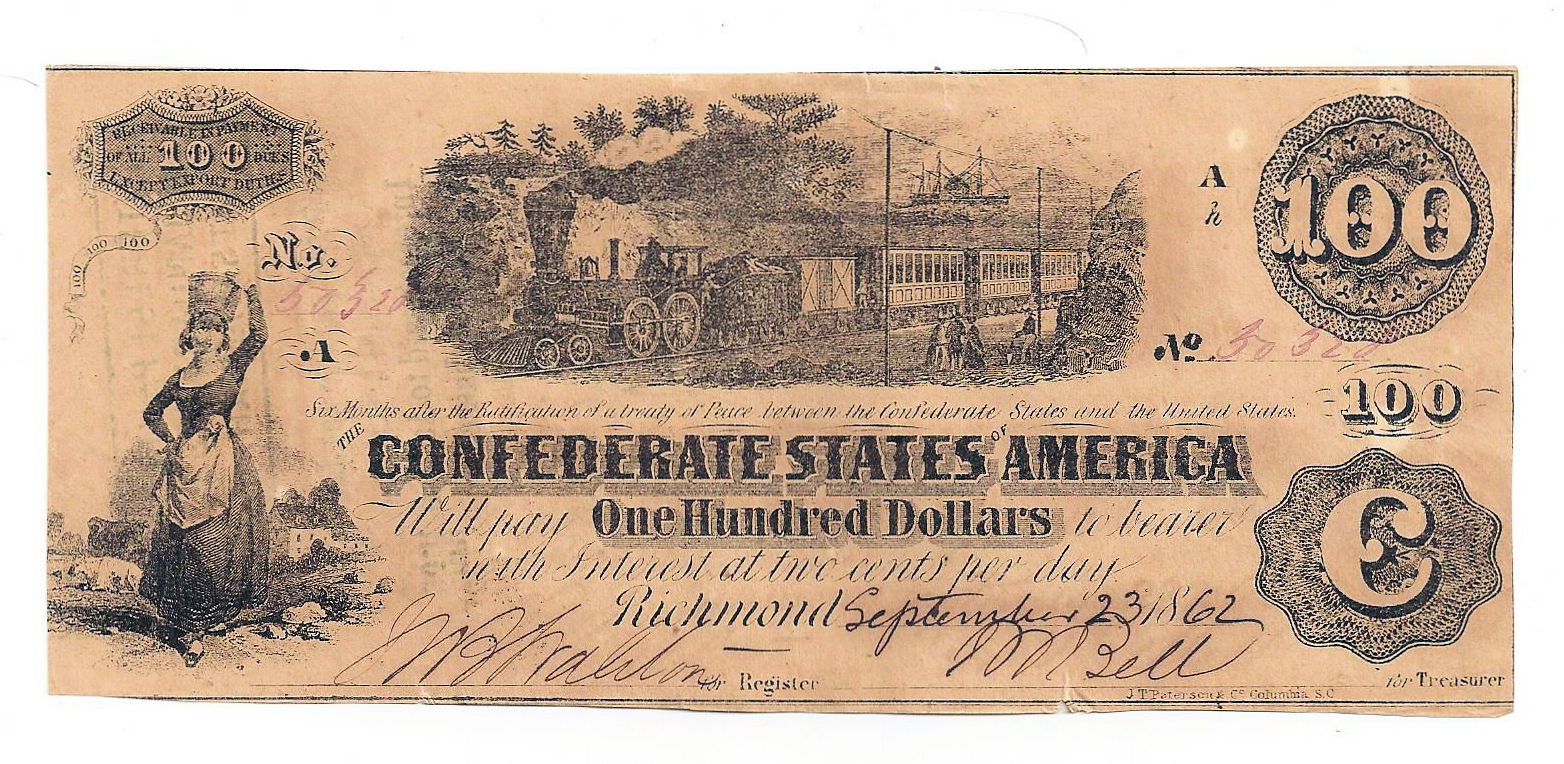 RECEIVABLE IN PAYMENT
OF ALL 100 DUES
EXCEPT EXPORT DUTIES
100 100 100
No.
A
A
h
100
No 
100
Six Months after the Ratification of a treaty of Peace between the Confederate States and the United States.
THE CONFEDERATE STATES OF AMERICA
Will pay One Hundred Dollars to bearer
with Interest at two cents per day
Richmond September 23 1862
C
for Register
Bell
for Treasurer
J T Paterson & Co Columbia S.C